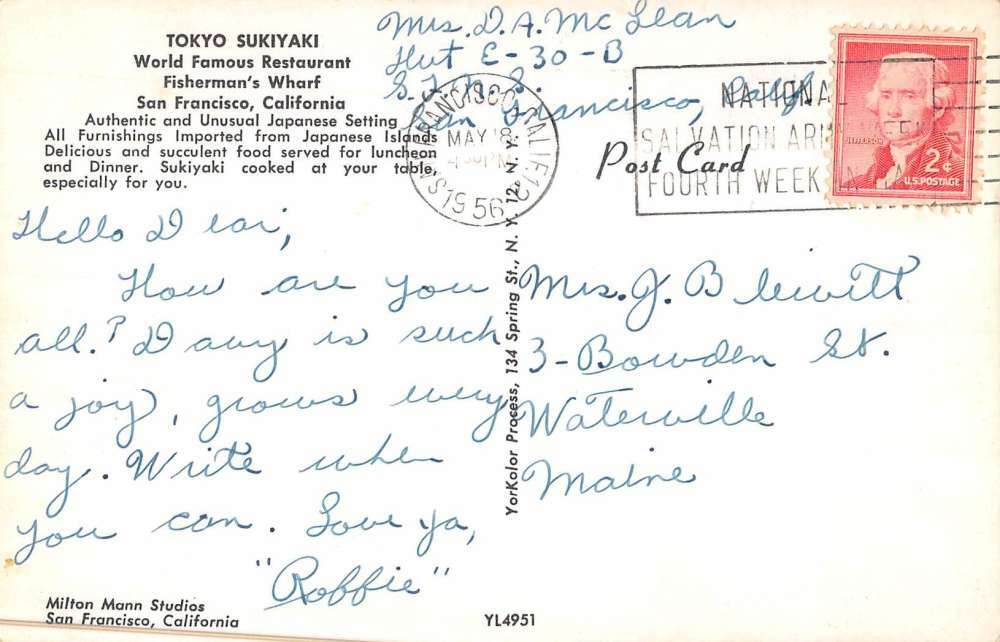 TOKYO SUKIYAKI
World Famous Restaurant
Fisherman's Wharf
San Francisco, California
Authentic and Unusual Japanese Setting
All Furnishings Imported from Japanese Islands
Delicious and succulent food served for luncheon
and Dinner. Sukiyaki cooked at your table,
especially for you.
Mrs. D. A. Mc Lean
Hut E-30-B
San Francisco, Calif.
SAN FRANCISCO, CALIF. 12
MAY 18
PM
1956
NATIONAL
SALVATION ARMY WEEK
FOURTH WEEK IN MAY
JEFFERSON
2¢
U.S. POSTAGE
Post Card
Hello Dear,
How are you
all? Davy is such
a joy, grows every
day. Write when
you can. Love ya,
"Roffie"
Mrs. J. B
3-Bowden St.
Waterville
Maine
YorKolor Process, 134 Spring St., N. Y. 12, N. Y.
Milton Mann Studios
San Francisco, California
YL4951